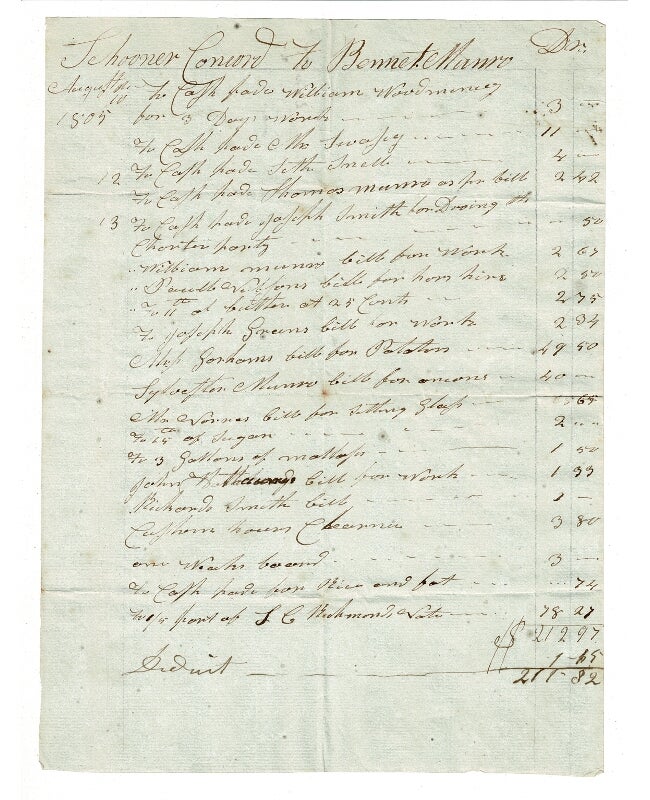 Schooner Concord To Bennet Munro Dr.
August the 10 To Cash pade William Woodmency
1805 for 3 Days Work 3 —
To Cash pade Mr Swasey 11 —
To Cash pade Seth Snell 4 —
12 To Cash pade Thomas Munro as pr bill 2 42
13 To Cash pade Joseph Smith for Drawing th
Charter party 50
" William Munro bill for Work 2 67
" bill for hors hire 2 50
" To 11 lb of butter at 25 Cents 2 75
To Joseph Greens bill for Work 2 84
Mrs Gorhams bill for Potatoes 49 50
Sylvester Munro bill for oncons 40 —
Mr bill for Setting Glass 65
To 15 lb of Sugar 2 ..
To 3 Gallons of mallass 1 50
John bill for Work 1 33
Richards Smith bill 1 —
Cashom houes Clearnce 3 80
one Weeks board 3 —
To Cash pade for Rice and fat 74
To 1/5 part of S C Richmonds Note 78 27
$ 212 97
Deduct 1-15
211-82